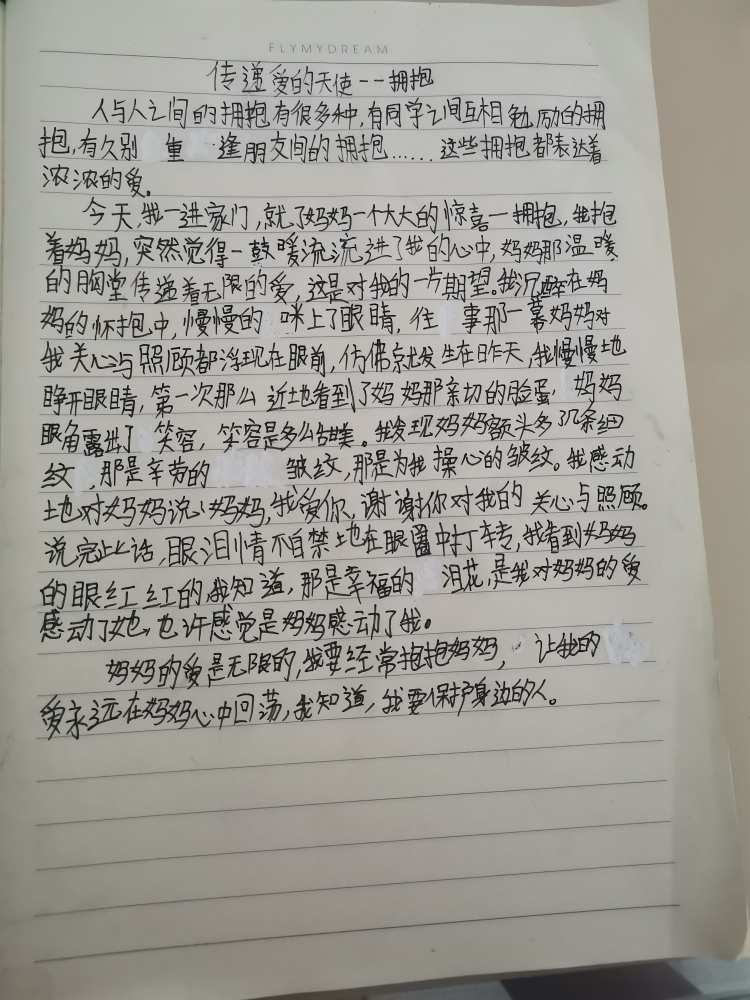 FLYMYDREAM
传递爱的天使--拥抱
人与人之间的拥抱有很多种,有同学之间互相勉励的拥
抱,有久别重逢朋友间的拥抱……这些拥抱都表达着
浓浓的爱。
今天,我一进家门,就了妈妈一个大大的惊喜一拥抱,我抱
着妈妈,突然觉得一鼓暖流流进了我的心中,妈妈那温暖
的胸堂传递着无限的爱,这是对我的一片期望。我沉醉在妈
妈的怀抱中,慢慢的咪上了眼睛,往事那一幕妈妈对
我关心与照顾都浮现在眼前,仿佛就发生在昨天,我慢慢地
睁开眼睛,第一次那么近地看到了妈妈那亲切的脸蛋,妈妈
眼角露出了笑容,笑容是多么甜美。我发现妈妈额头多几条细
纹,那是辛劳的皱纹,那是为我操心的皱纹。我感动
地对妈妈说:妈妈,我爱你,谢谢你对我的关心与照顾。
说完此话,眼泪情不自禁地在眼圈中打转,我看到妈妈
的眼红红的,我知道,那是幸福的泪花,是我对妈妈的爱
感动了她,也许感觉是妈妈感动了我。
妈妈的爱是无限的,我要经常抱抱妈妈,让我的
爱永远在妈妈心中回荡,我知道,我要保护身边的人。